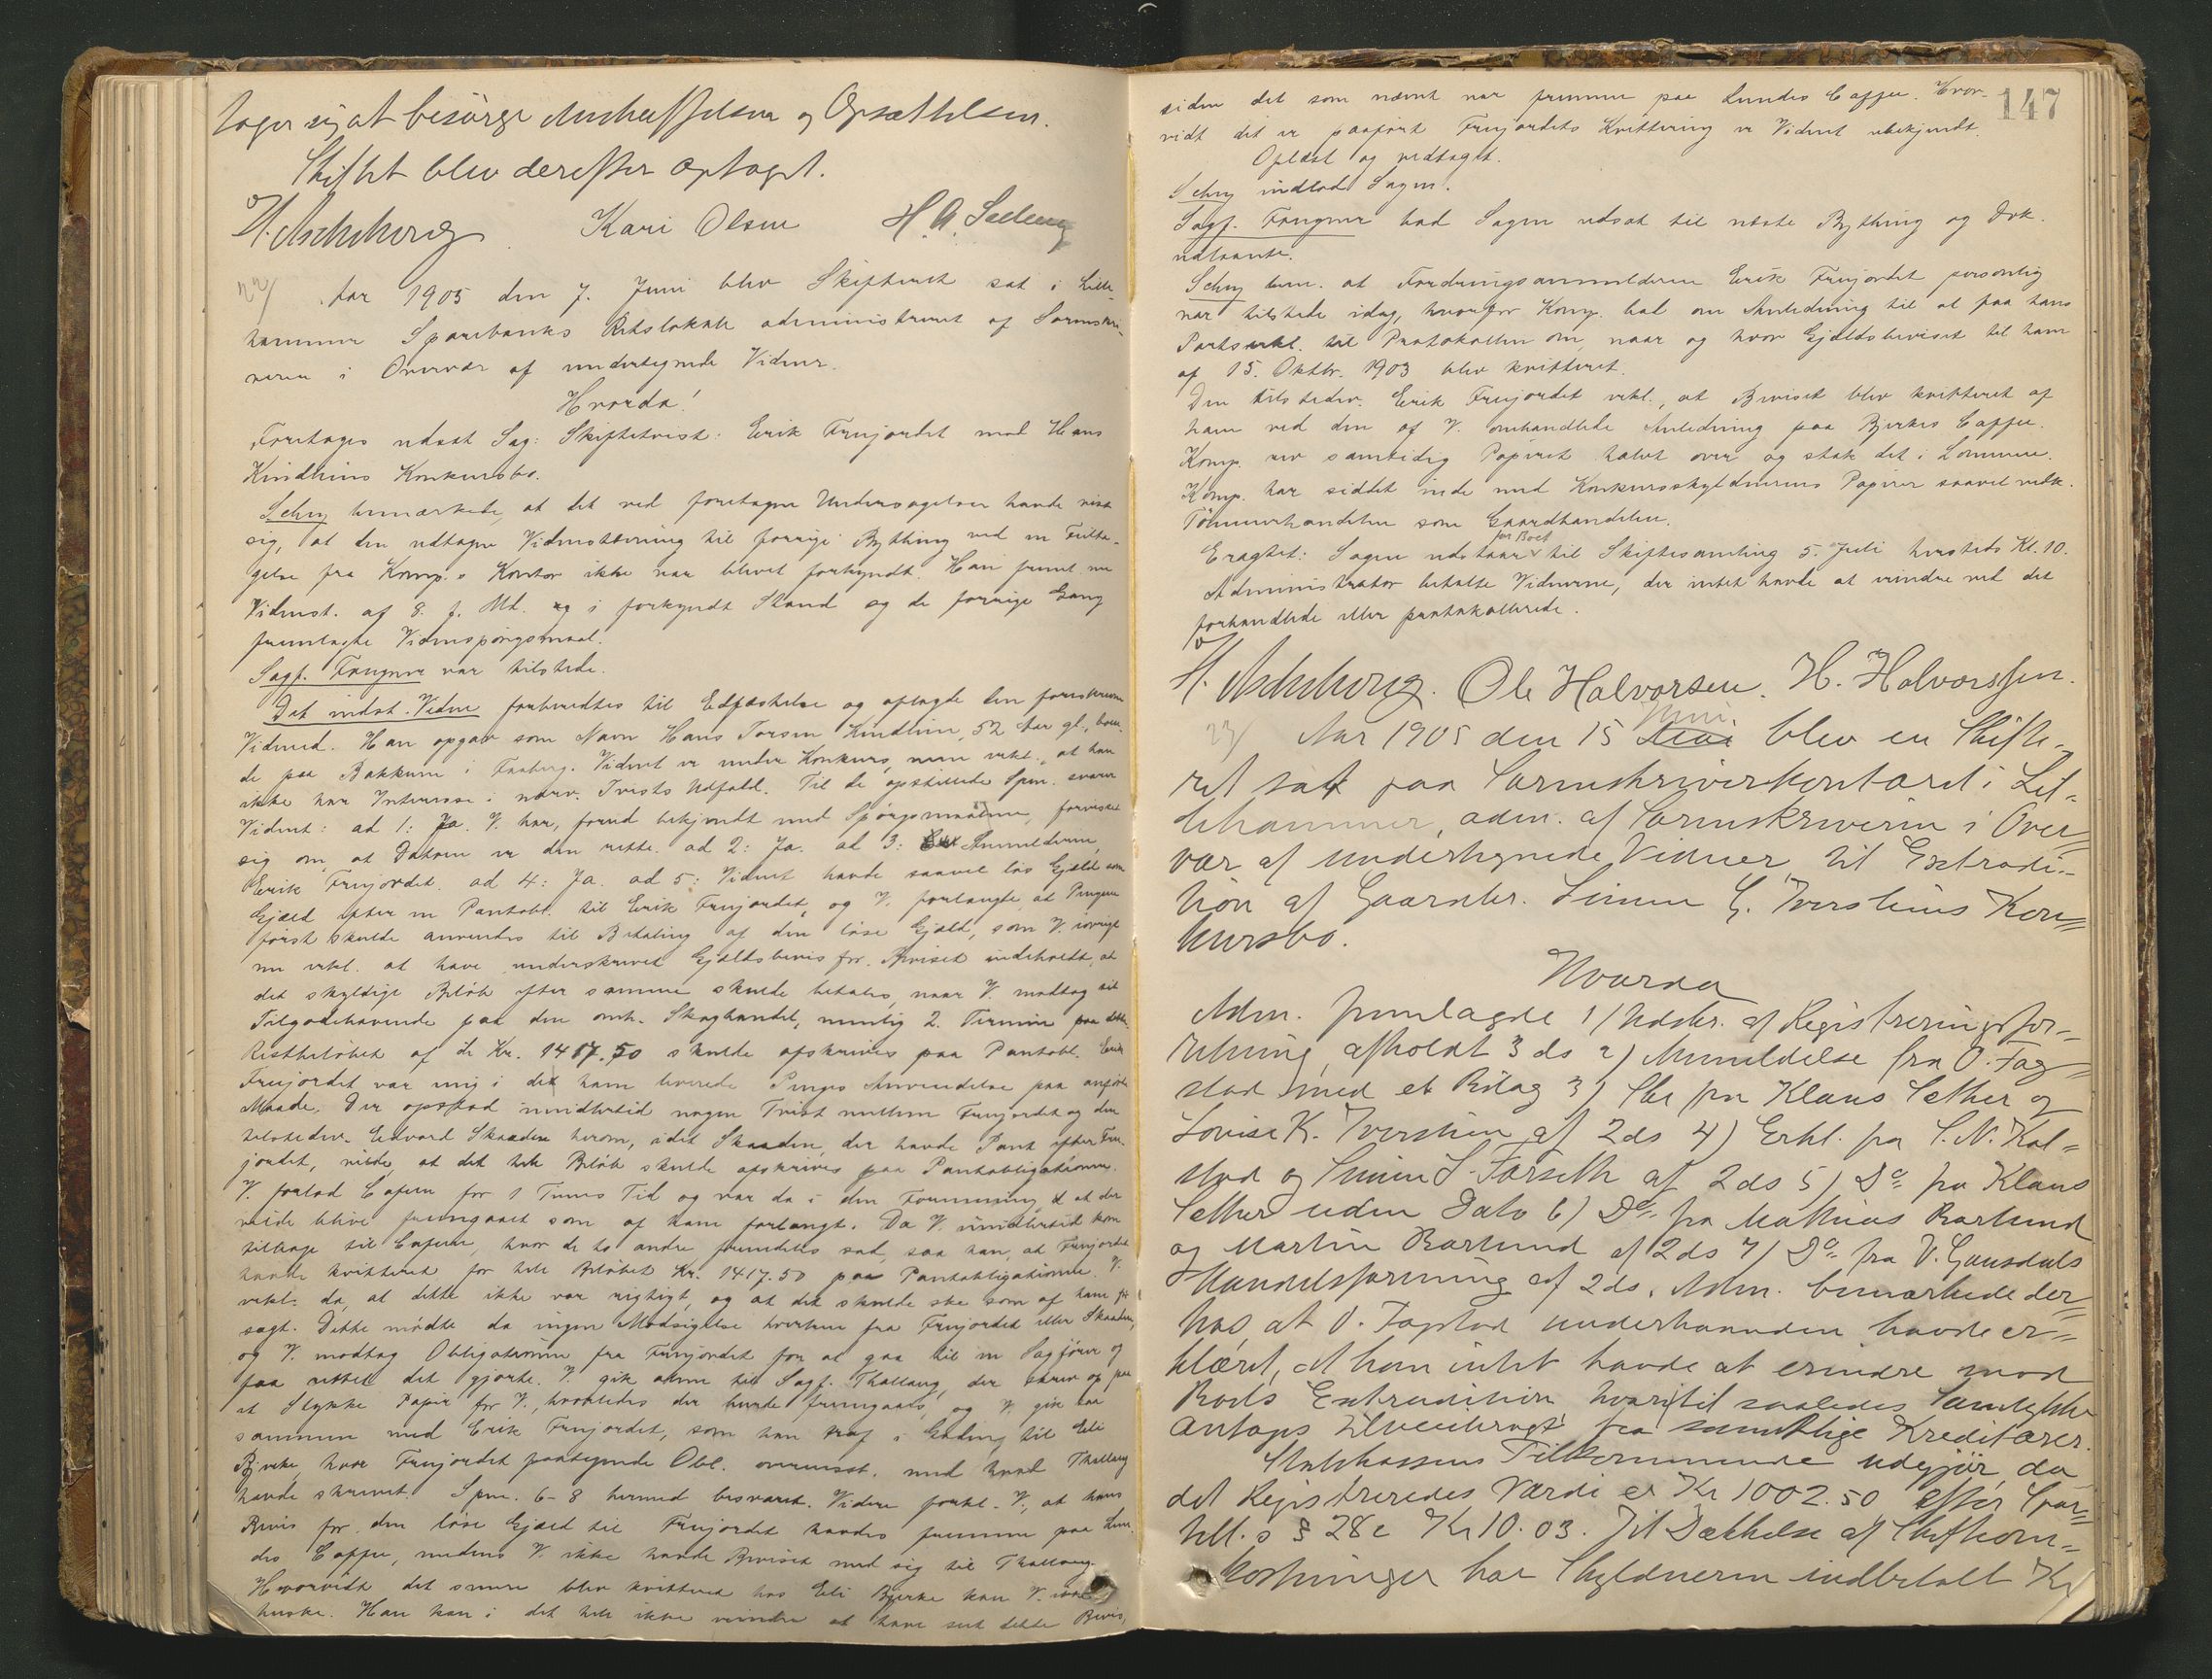 tager sig at besørge Anskaffelsen og Opsættelsen.
Skiftet blev derefter optaget.
H. Aschehoug Kari Olsen H. A. Selberg
22/ Aar 1905 den 7. Juni blev Skifteret sat i Lille-
hammer Sparebanks Retslokale administreret af Sorenskri-
veren i Overvær af undertegnede Vidner.
Hvorda!
Foretages udsat Sag: Skiftetvist: Erik Frujordet mod Hans
Kindlins Konkursbo.
Schey bemærkede, at det ved foretagne Undersøgelser havde vist
sig, at den udtagne Vidnestævning til forrige Bything ved en Feilta-
gelse fra Komp.s Kontor ikke var blevet forkyndt. Han freml. nu
Vidnest. af 8. f. Md. i forkyndt Stand og de forrige Gang
fremlagte Vidnespørgsmaal.
Sagf. Frugner var tilstede.
Det indst. Vidne forberedtes til Edfæstelse og aflagde den foreskrevne
Vidneed. Han opgav som Navn Hans Torsen Kindlin, 52 Aar gl., boen-
de paa Bakkum i Faaberg. Vidnet er under Konkurs, men erkl., at han
ikke har Interesse i nærv. Tvists Udfald. Til de opstillede Spm. svarer
Vidnet: ad 1: Ja. V. har, forud bekjendt med Spørgsmaalene, forvisset
sig om, at Datoen er den rette. ad 2: Ja. ad 3: Anmelderen,
Erik Frujordet. ad 4: Ja. ad 5: Vidnet havde saavel løs Gjæld som
Gjæld efter en Pantobl. til Erik Frujordet, og V. forlangte, at Pengene
først skulde anvendes til Betaling af den løse Gjæld, som V. iøvrigt
nu erkl. at have underskrevet Gjældsbevis for. Beviset indeholdt, at
det skyldige Beløb efter samme skulde betales, naar V. modtog sit
Tilgodehavende paa den omh. Skoghandel, nemlig 2. Termin paa dette.
Restbeløbet af de Kr. 1417.50 skulde afskrives paa Pantobl. Erik
Frujordet var enig i det ham leverede Penges Anvendelse paa anførte
Maade. Der opstod imidlertid nogen Tvist mellem Frujordet og den
tilstedev. Edvard Skaaden herom, idet Skaaden, der havde Pant efter Fru-
jordet, vilde, at det hele Beløb skulde afskrives paa Pantobligationen.
V. forlod Cafeen for 1 Times Tid og var da i den Formening, at det
vilde blive fremgaaet som af ham forlangt. Da V. imidlertid kom
tilbage til Cafeen, hvor de to andre fremdeles sad, saa han, at Frujordet
havde kvitteret for hele Beløbet Kr. 1417.50 paa Pantobligationen. V.
erkl. da, at dette ikke var rigtigt, og at det skulde ske som af ham før
sagt. Dette mødte da ingen Modsigelse hverken fra Frujordet eller Skaaden,
og V. modtog Obligationen fra Frujordet for at gaa til en Sagfører og
faa rettet det gjorte. V. gik alene til Sagf. Thallaug, der skrev op paa
et Stykke Papir for V., hvorledes der burde fremgaaes, og V. gik saa
sammen med Erik Frujordet, som han traf i Gading til Eli
Bjerke, hvor Frujordet paategnede Obl. overensst. med hvad Thallaug
havde skrevet. Spm. 6-8 hermed besvaret. Videre forkl. V., at hans
Bevis for den løse Gjæld til Frujordet havdes fremme paa Lun-
des Caffee, medens V. ikke havde Beviset med sig til Thallaug.
Hvorvidt det senere blev kvitteret hos Eli Bjerke kan V. ikke
huske. Han kan i det hele ikke erindre at have set dette Bevis,
147
siden det som nævnt var fremme paa Lundes Caffee. Hvor-
vidt det er paaført Frujordets Kvittering er Vidnet ubekjendt.
Oplæst og vedtaget.
Schey indlod Sagen.
Sagf. Frugner bad Sagen udsat til næste Bything og Dok.
udlaante.
Schey bem. at Fordringsanmelderen Erik Frujordet personlig
var tilstede idag, hvorfor Komp. bad om Anledning til at faa hans
Partserkl. til Protokollen om, naar og hvor Gjældsbeviset til ham
af 15. Oktbr. 1903 blev kvitteret.
Den tilstedev. Erik Frujordet erkl., at Beviset blev kvitteret af
ham ved den af V. omhandlede Anledning paa Bjerkes Caffee.
Komp. rev samtidig Papiret halvt over og stak det i Lommen.
Komp. har siddet inde med Konkursskyldnerens Papirer saavel vedk.
Tømmerhandelen som Gaardhandelen.
Eragtet: Sagen udstaar for Boet til Skiftesamling 5. Juli hersteds Kl. 10.
Administrator betalte Vidnerne, der intet havde at erindre ved det
forhandlede eller protokollerede.
H. Aschehoug. Ole Halvorsen. H. Halvorssen.
23/ Aar 1905 den 15 Juni blev en Skifte-
ret sat paa Sorenskriverkontoret i Lil-
lehammer, adm. af Sorenskriveren i Over-
vær af undertegnede Vidner til Extradi-
tion af Gaardbr. Simen G. Iverslins Kon-
kursbo.
Hvorda
Adm. fremlagde 1) Udskr. af Registreringsfor-
retning, afholdt 3 ds 2) Anmeldelse fra O. Fag-
stad med et Bilag 3) Skr fra Klaus Sether og
Lovise K. Iverslien af 2 ds 4) Erkl. fra S. N. Kol-
stad og Simen S. Forseth af 2 ds 5) Do fra Klaus
Sether uden Dato 6) Do fra Mathias Barlund
og Martin Barlund af 2 ds 7) Do fra V. Gausdals
Handelsforening af 2 ds. Adm. bemærkede der-
hos, at O. Fagstad underhaanden havde er-
klæret, at han intet havde at erindre mod
Boets Extradition hvortil saaledes Samtykke
antages tilveiebragt fra samtlige Kreditorer.
Statskassens Tilkommende udgjør, da
det Registreredes Værdi er Kr 1002.50 efter Spor-
tell.s § 28c Kr 10.03. Til Dækkelse af Skifteom-
kostninger har Skyldneren indbetalt Kr